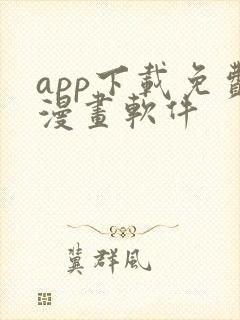 app下載免費
漫畫軟件
冀群風